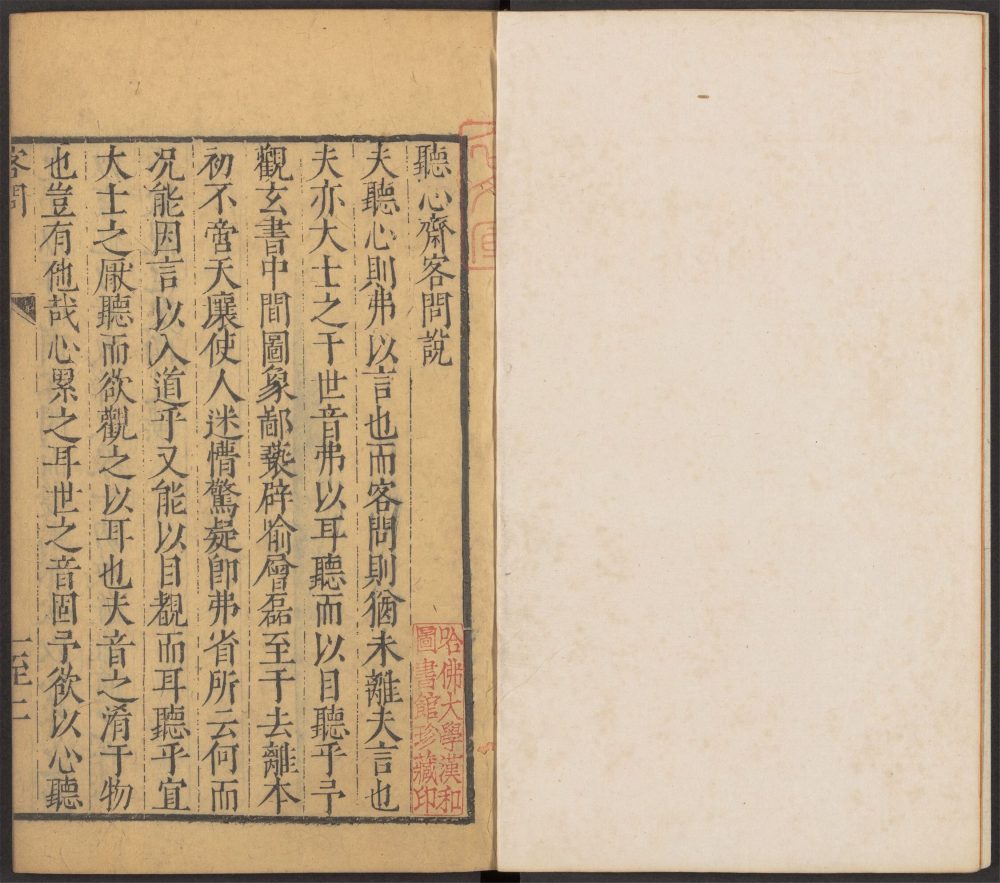 聽心齋客問說
夫聽心則弗以言也而客問則猶未離夫言也
夫亦大士之于世音弗以耳聽而以目聽乎予
觀玄書中間圖象鄙褻辟喻層磊至于去離本
初不啻天廩使人迷惛驚疑卽弗省所云何而
况能因言以入道乎又能以目覩而耳聽乎宜
大士之厭聽而欲觀之以耳也夫音之淆于物
也豈有他哉心累之耳世之音固予欲以心聽
客問
一至二
哈佛大學漢和
圖書館珍藏印